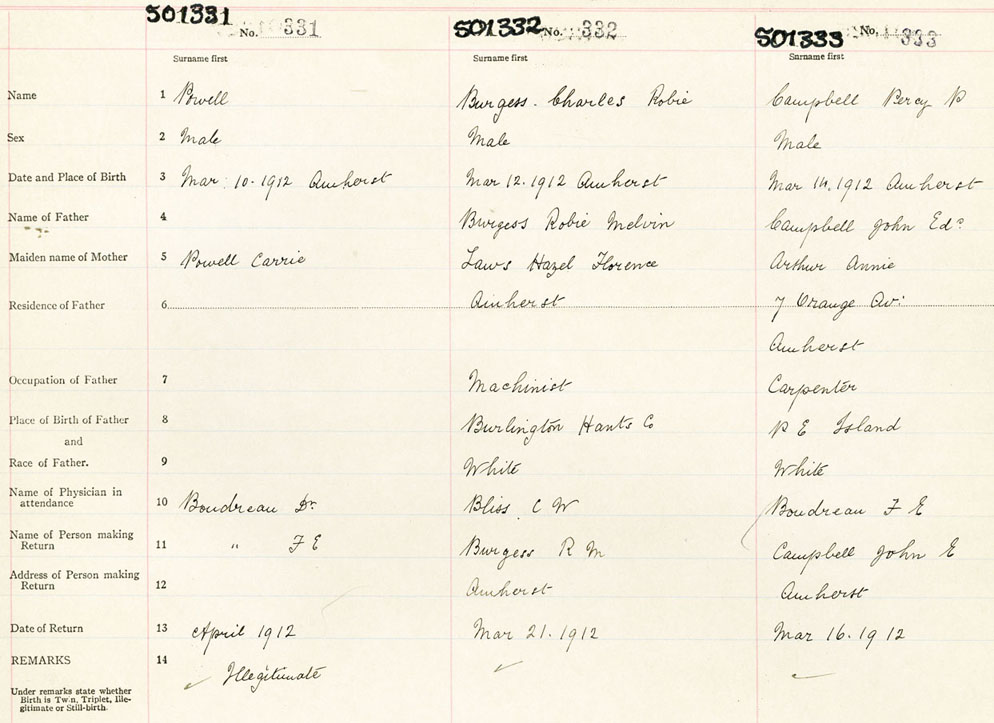 501331 No. 331 501332 No. 332 501333 No. 333
Surname first Surname first Surname first
Name 1 Powell Burgess. Charles Robie Campbell Percy P
Sex 2 Male Male Male
Date and Place of Birth 3 Mar 10.1912 Amherst Mar 12.1912 Amherst Mar 14.1912 Amherst
Name of Father 4 Burgess Robie Melvin Campbell John Edc
Maiden name of Mother 5 Powell Carrie Laws Hazel Florence Arthur Annie
Residence of Father 6 Amherst 7 Orange Av:
Amherst
Occupation of Father 7 Machinist Carpenter
Place of Birth of Father 8 Burlington Hants Co P E Island
and
Race of Father. 9 White White
Name of Physician in
attendance 10 Boudreau Dr. Bliss C W Boudreau F E
Name of Person making
Return 11 " F E Burgess R M Campbell John E
Address of Person making
Return 12 Amherst Amherst
Date of Return 13 April 1912 Mar 21.1912 Mar 16.1912
REMARKS 14 Illegitimate
Under remarks state whether
Birth is Twin, Triplet, Ille-
gitimate or Still-birth.